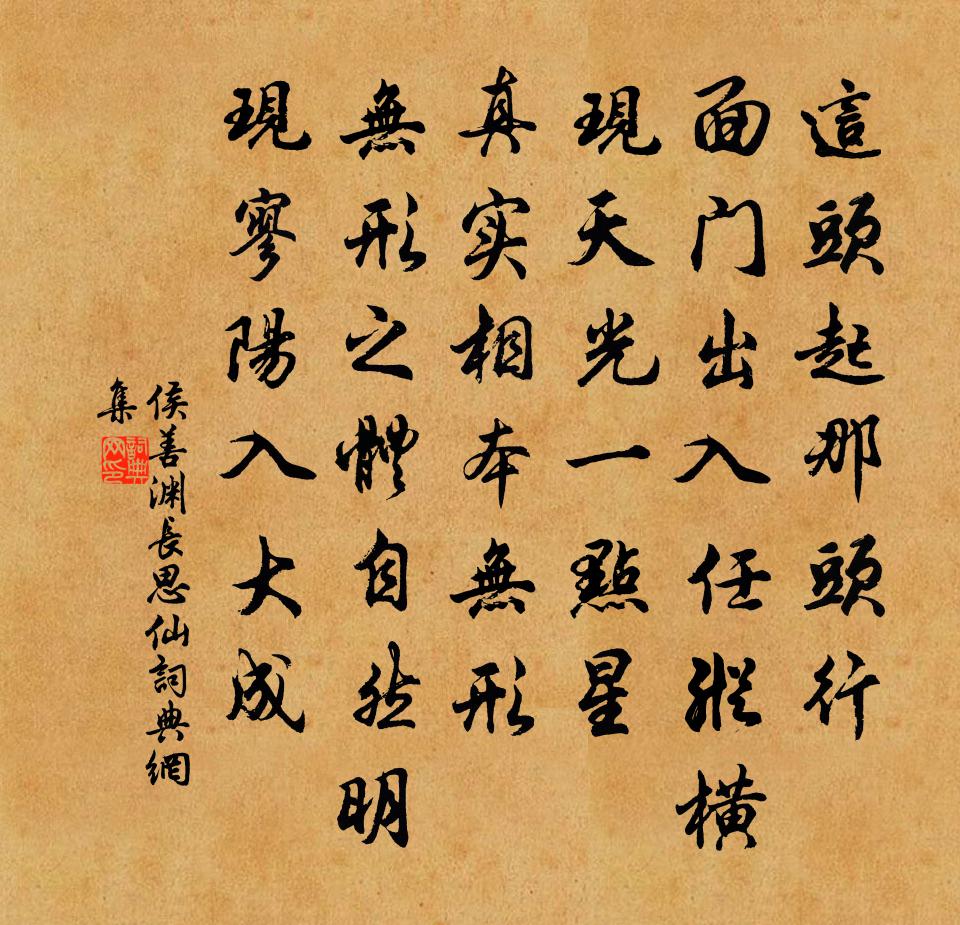 這頭起那頭行
面门出入任縱橫
現天光一點星
真实相本無形
無形之體自然明
現寥陽入大成
侯善渊長思仙詞典網
集
詞典网印